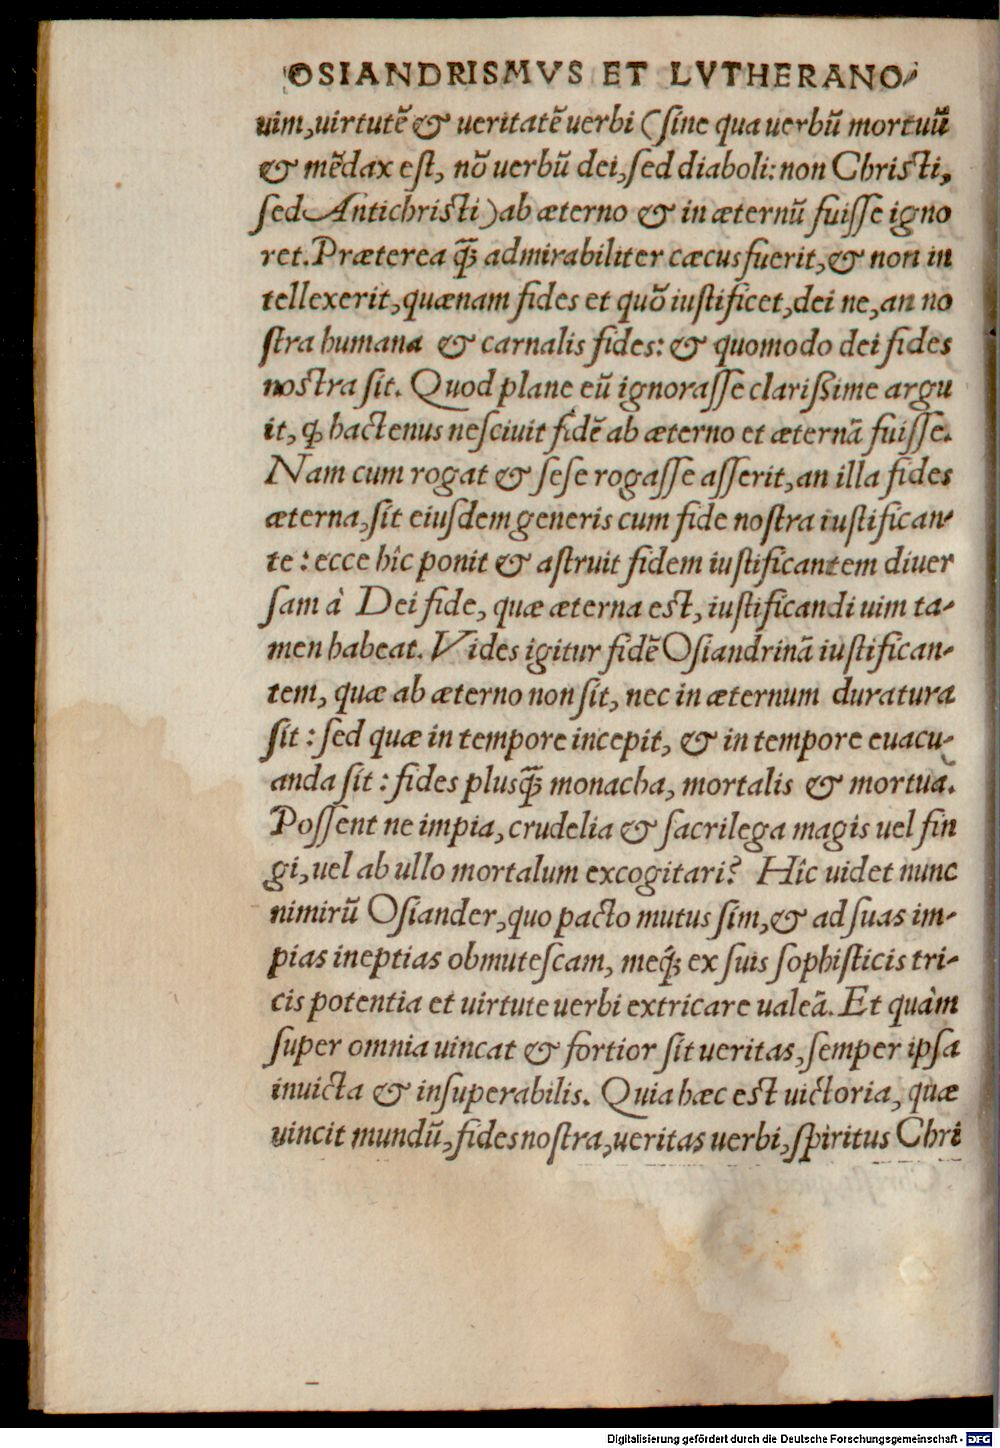 OSIANDRISMVS ET LVTHERANO-
uim, uirtutẽ & ueritatẽ uerbi (sine qua uerbũ mortuũ
& mẽdax est, nõ uerbũ dei, sed diaboli: non Christi,
sed Antichristi) ab æterno & in æternũ fuisse igno
ret. Præterea q̃ʒ admirabiliter cæcus fuerit, & non in
tellexerit, quænam fides et quõ iustificet, dei ne, an no
stra humana & carnalis fides: & quomodo dei fides
nostra sit. Quod plane eũ ignorasse clarißime argu
it, ꝙ hactenus nesciuit fidẽ ab æterno et æternã fuisse.
Nam cum rogat & sese rogasse asserit, an illa fides
æterna, sit eiusdem generis cum fide nostra iustifican-
te: ecce hîc ponit & astruit fidem iustificantem diuer
sam à Dei fide, quæ æterna est, iustificandi uim ta-
men habeat. Vides igitur fidẽ Osiandrinã iustifican-
tem, quæ ab æterno non sit, nec in æternum duratura
sit: sed quæ in tempore incepit, & in tempore euacu-
anda sit: fides plusq̃ʒ monacha, mortalis & mortua.
Possent ne impia, crudelia & sacrilega magis uel fin
gi, uel ab ullo mortalum excogitari? Hîc uidet nunc
nimirũ Osiander, quo pacto mutus sim, & ad suas im-
pias ineptias obmutescam, meq́ʒ ex suis sophisticis tri-
cis potentia et uirtute uerbi extricare ualeã. Et quàm
super omnia uincat & fortior sit ueritas, semper ipsa
inuicta & insuperabilis. Quia hæc est uictoria, quæ
uincit mundũ, fides nostra, ueritas uerbi, spiritus Chri
Digitalisierung gefördert durch die Deutsche Forschungsgemeinschaft - DFG